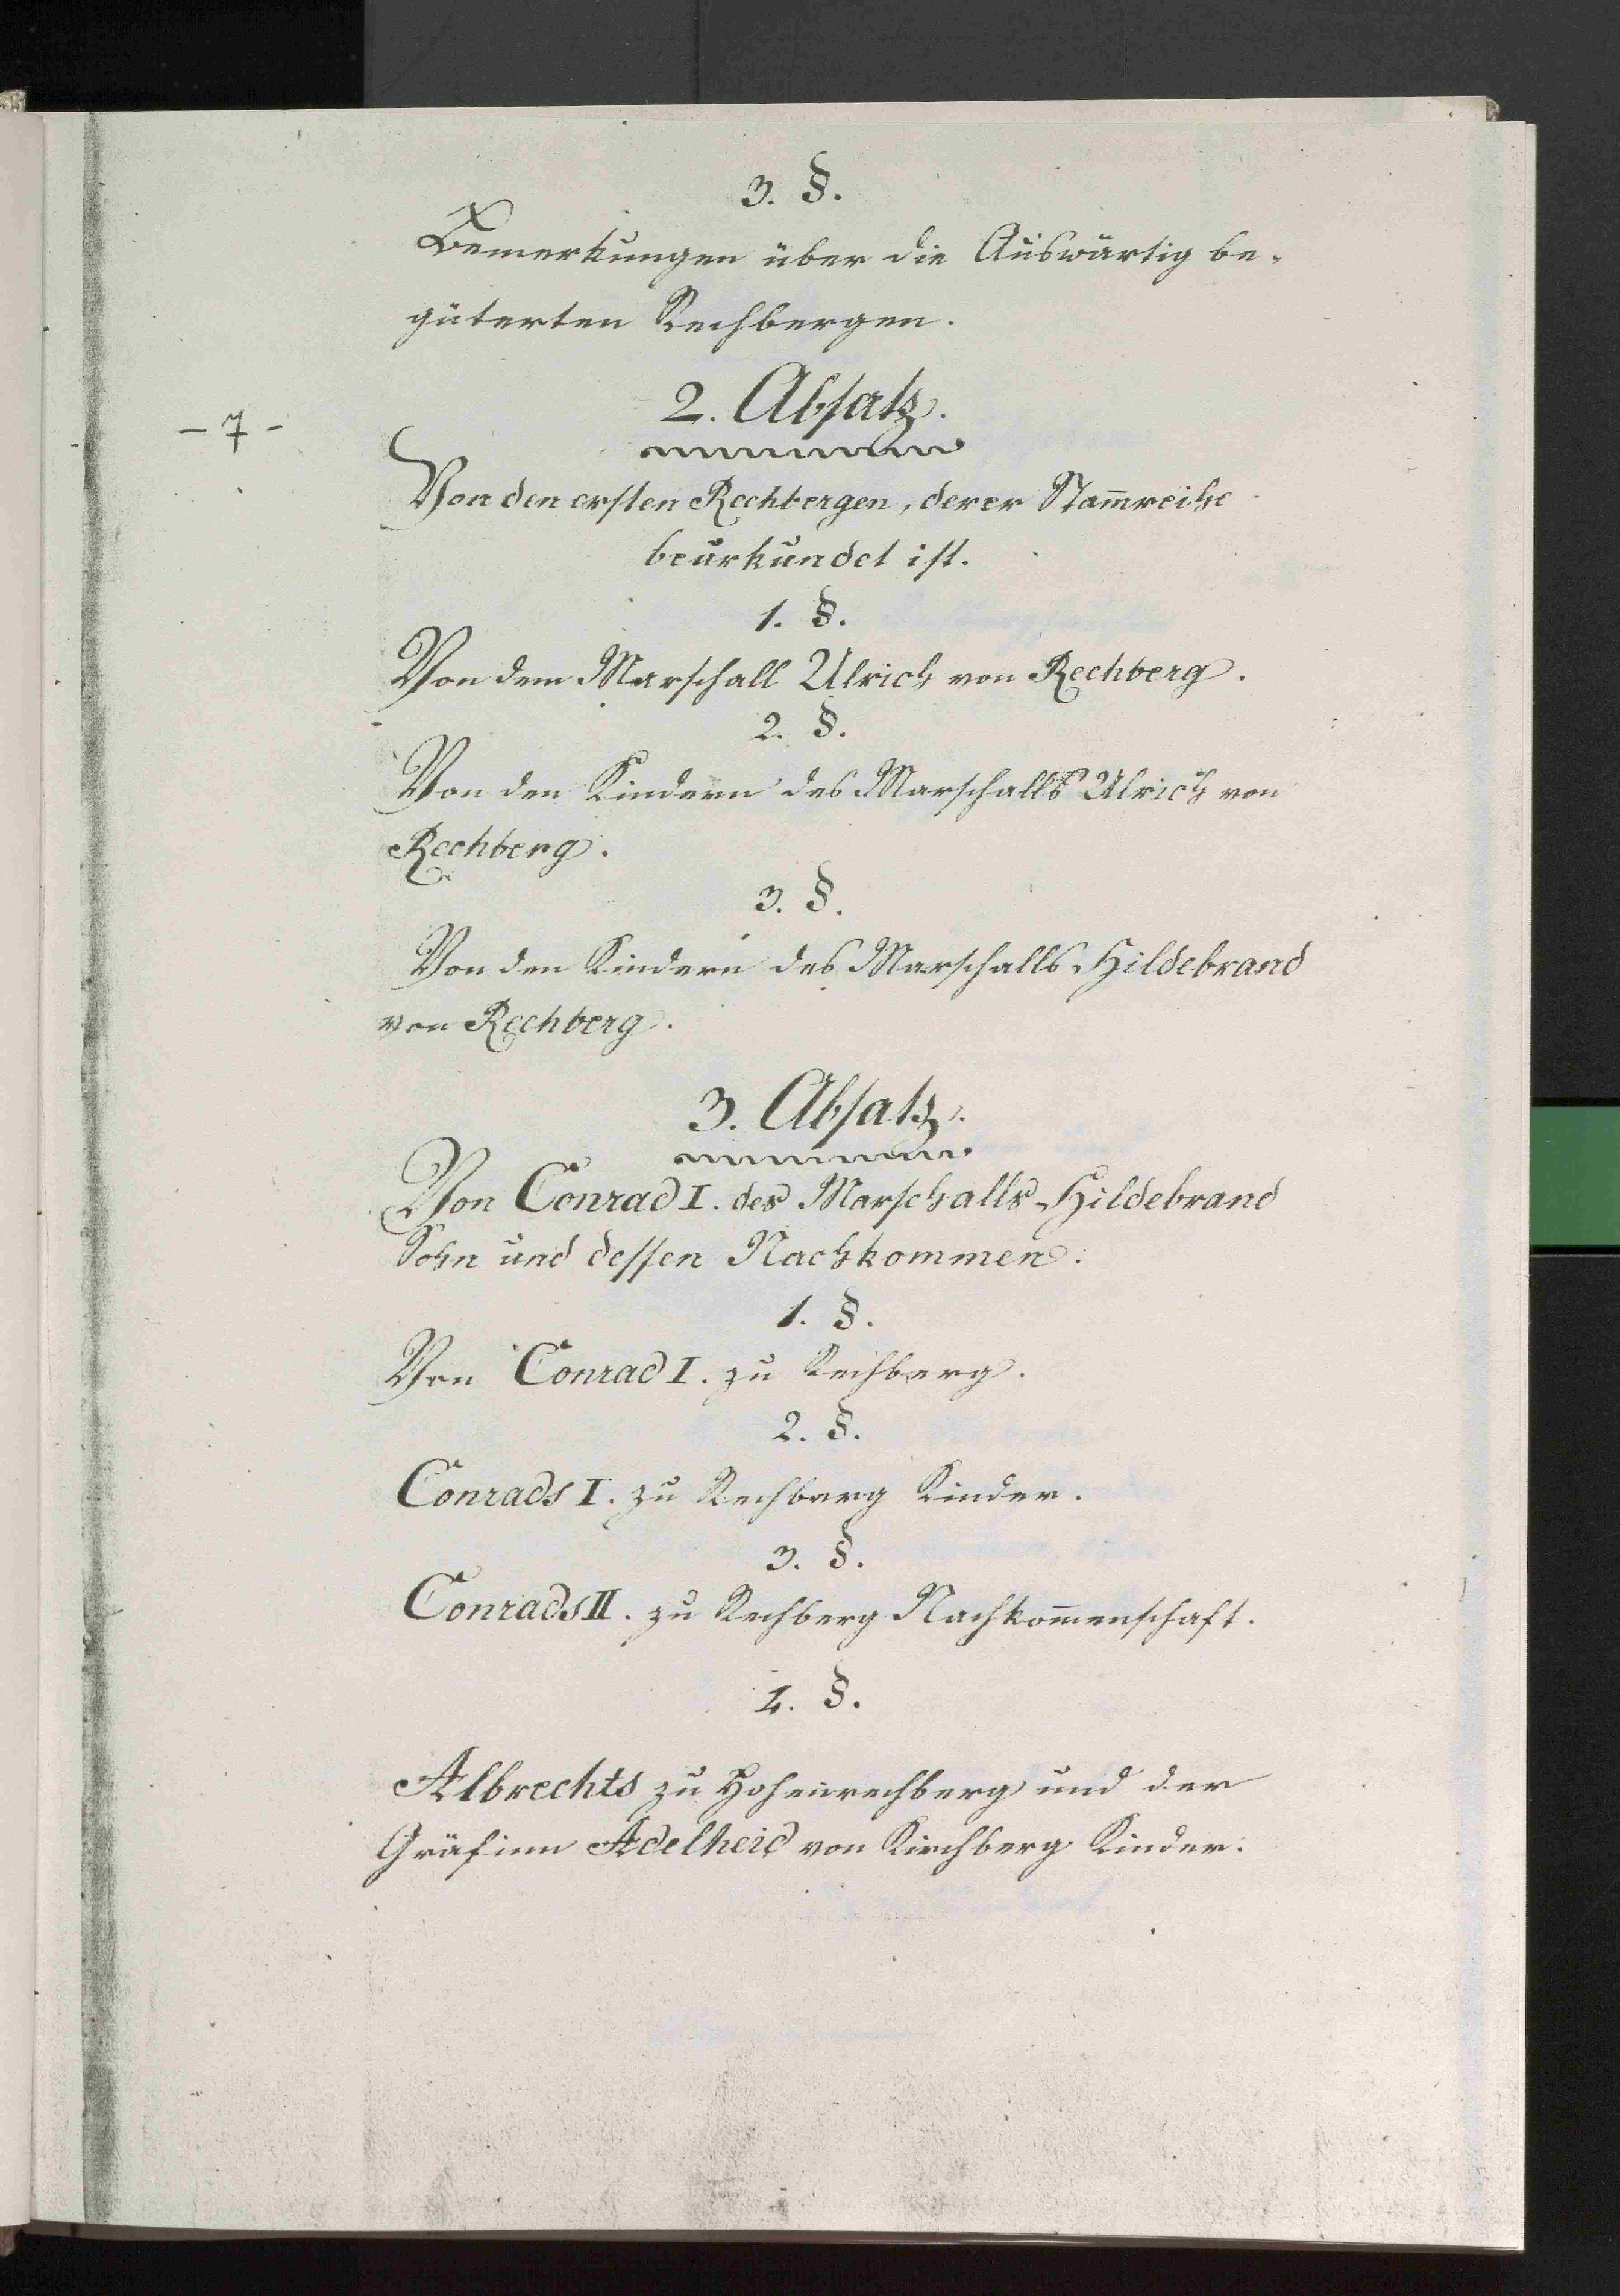 3. §.
Bemerkungen über die Auswärtig be-
güterten Rechbergen.
- 7 -
2. Absatz.
Von den ersten Rechbergen, derer Stam̅reihe
beurkundet ist.
1. §.
Von dem Marschall Ulrich von Rechberg.
2. §.
Von den Kindern des Marschalls Ulrich von
Rechberg.
3. §.
Von den Kindern des Marschalls Hildebrand
von Rechberg.
3. Absatz.
Von Conrad I. des Marschalls Hildebrand
Sohn und dessen Nachkommen.
1. §.
Von Conrad I. zu Rechberg.
2. §.
Conrads I. zu Rechberg Kinder.
3. §.
Conrads II. zu Rechberg Nachkom̅enschaft.
4. §.
Albrechts zu Hohenrechberg und der
Gräfinn Adelheid von Kirchberg Kinder.